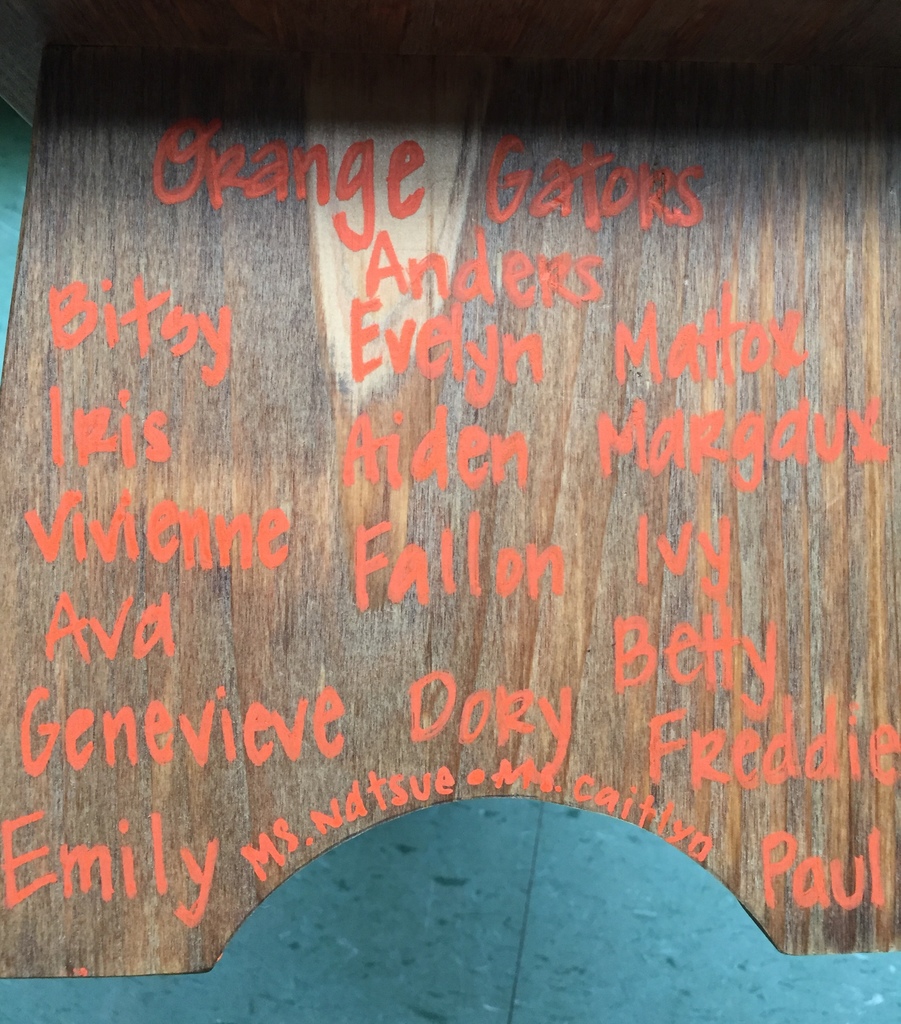 Orange Gators
Anders
Bitsy Evelyn Mattox
Iris Aiden Margaux
Vivienne Fallon Ivy
Ava Betty
Genevieve Dory Freddie
Emily Ms. Natsue • Ms. Caitlyn Paul